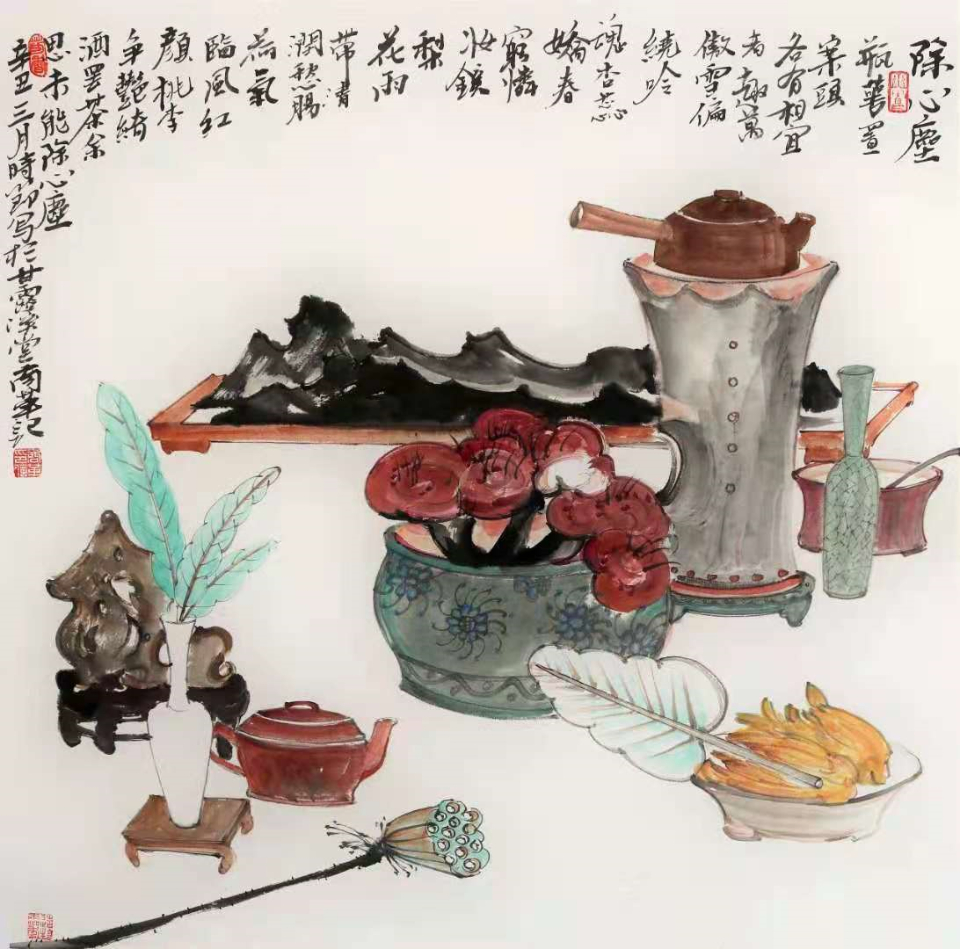 除心塵
瓶蕚置
案頭
各有相宜
者趣萬
傲雪偏
繞吟
魂杏蕊
嬌春
窮憐
妝鏡
梨
花雨
帶清
潤愁腸
荷氣
臨風紅
顏桃李
爭艷綺
酒罷茶余
思未能除心塵
辛丑三月時節写於甘露溪堂南華記